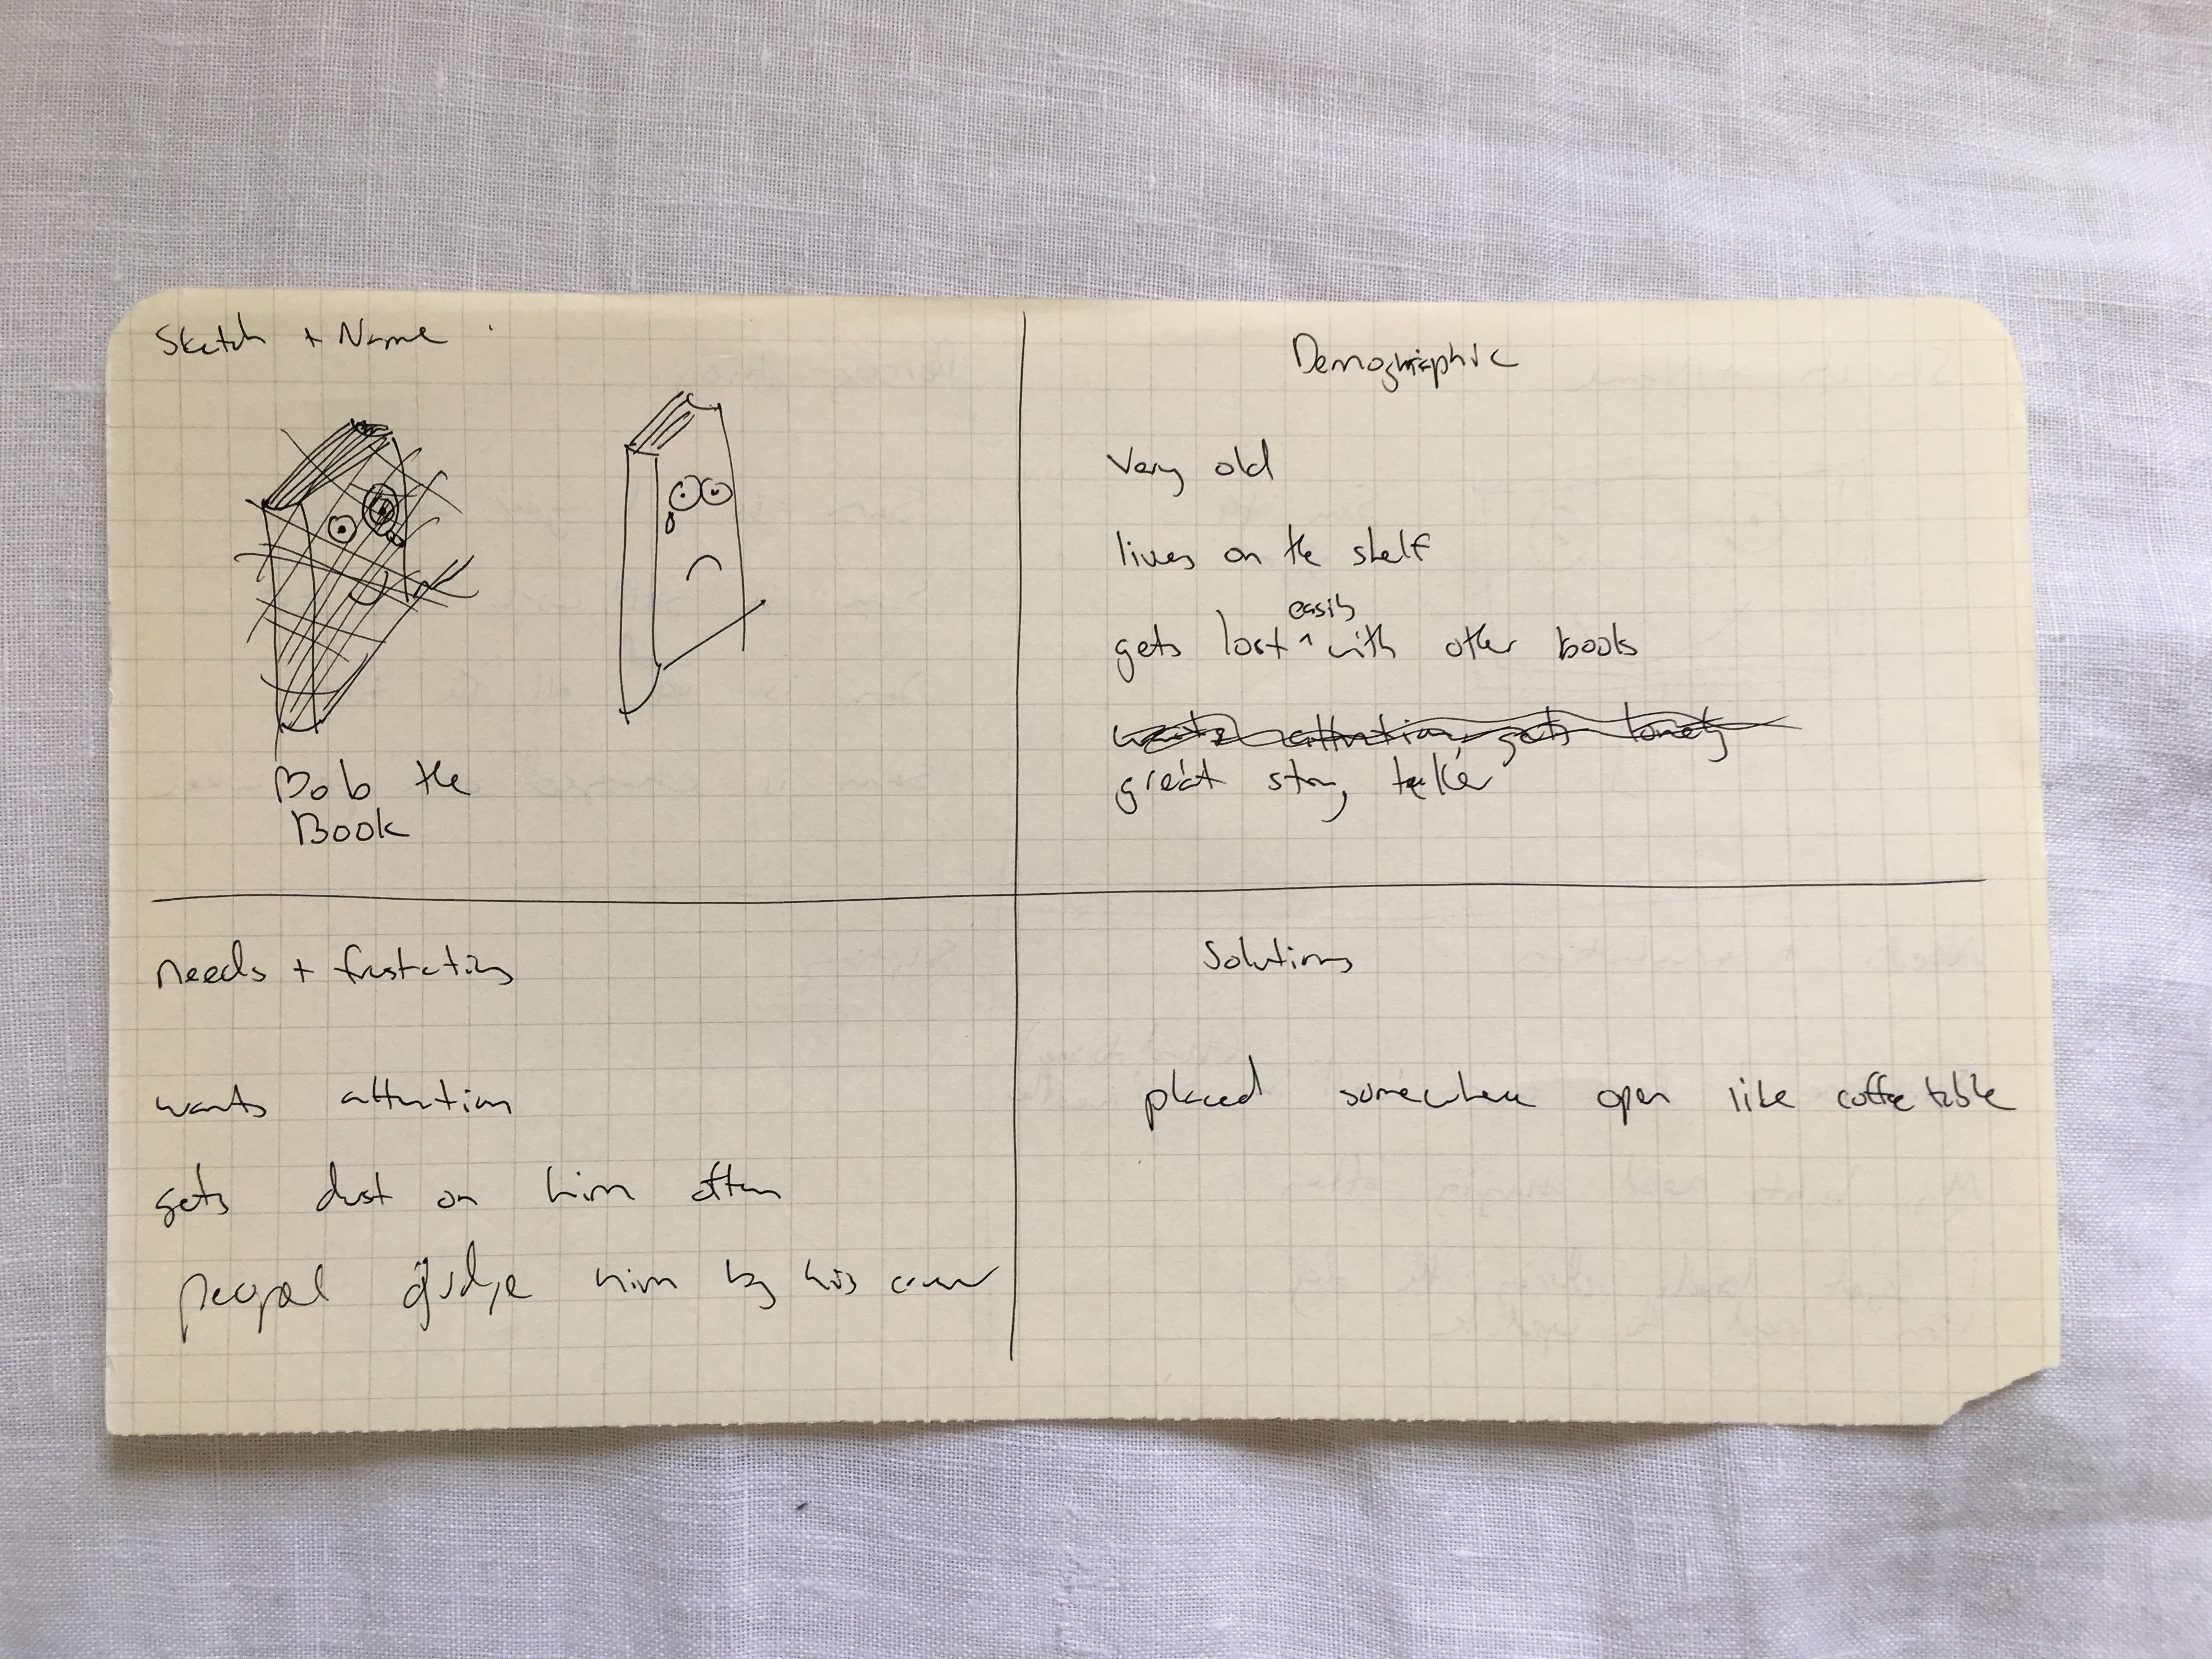 Sketch + Name
Bob the
Book
Demographic
Very old
lives on the shelf
easily
gets lost ^ with other books
wants attention, gets lonely
great story teller
needs + frustations
wants attention
gets dust on him often
peopel gudge him by his cover
Solutions
placed somewhere open like coffee table